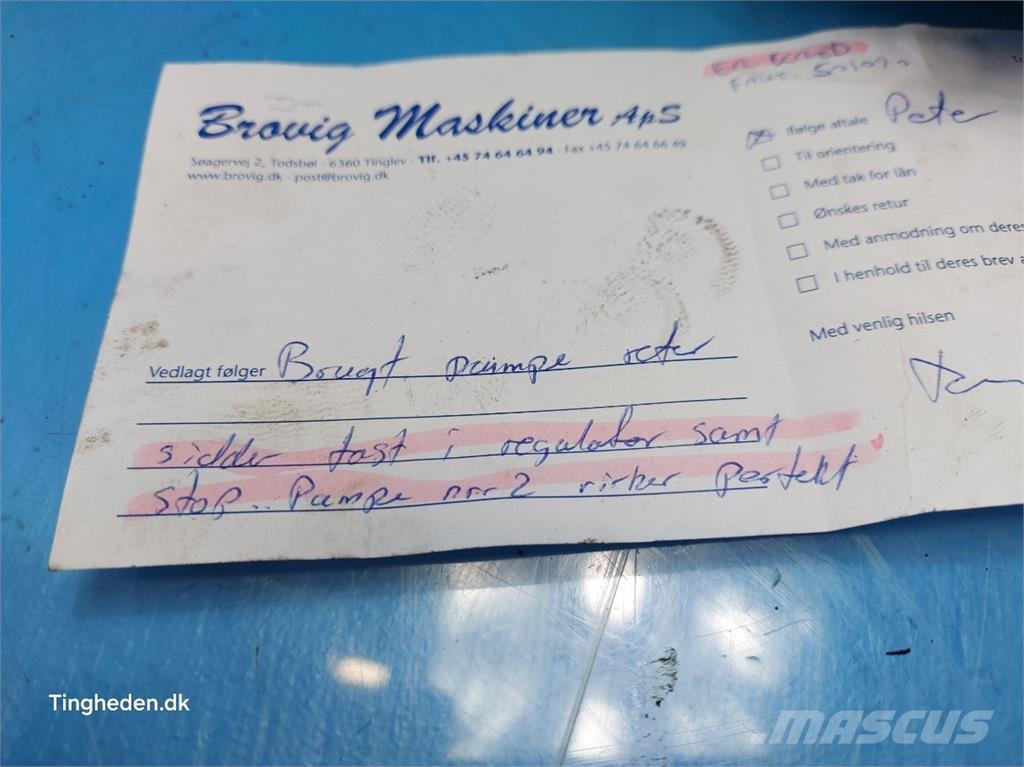 Brovig Maskiner ApS
Søagervej 2, Todsbøl · 6360 Tinglev · Tlf. +45 74 64 64 94 · Fax +45 74 64 66 49
www.brovig.dk · post@brovig.dk
Ifølge aftale Peter
Til orientering
Med tak for lån
Ønskes retur
Med anmodning om deres
I henhold til deres brev a
Med venlig hilsen
Vedlagt følger Brugt pumpe
sidder fast i regulator samt
stop.. Pumpe nr 2 virker perfekt
Tingheden.dk
MASCUS